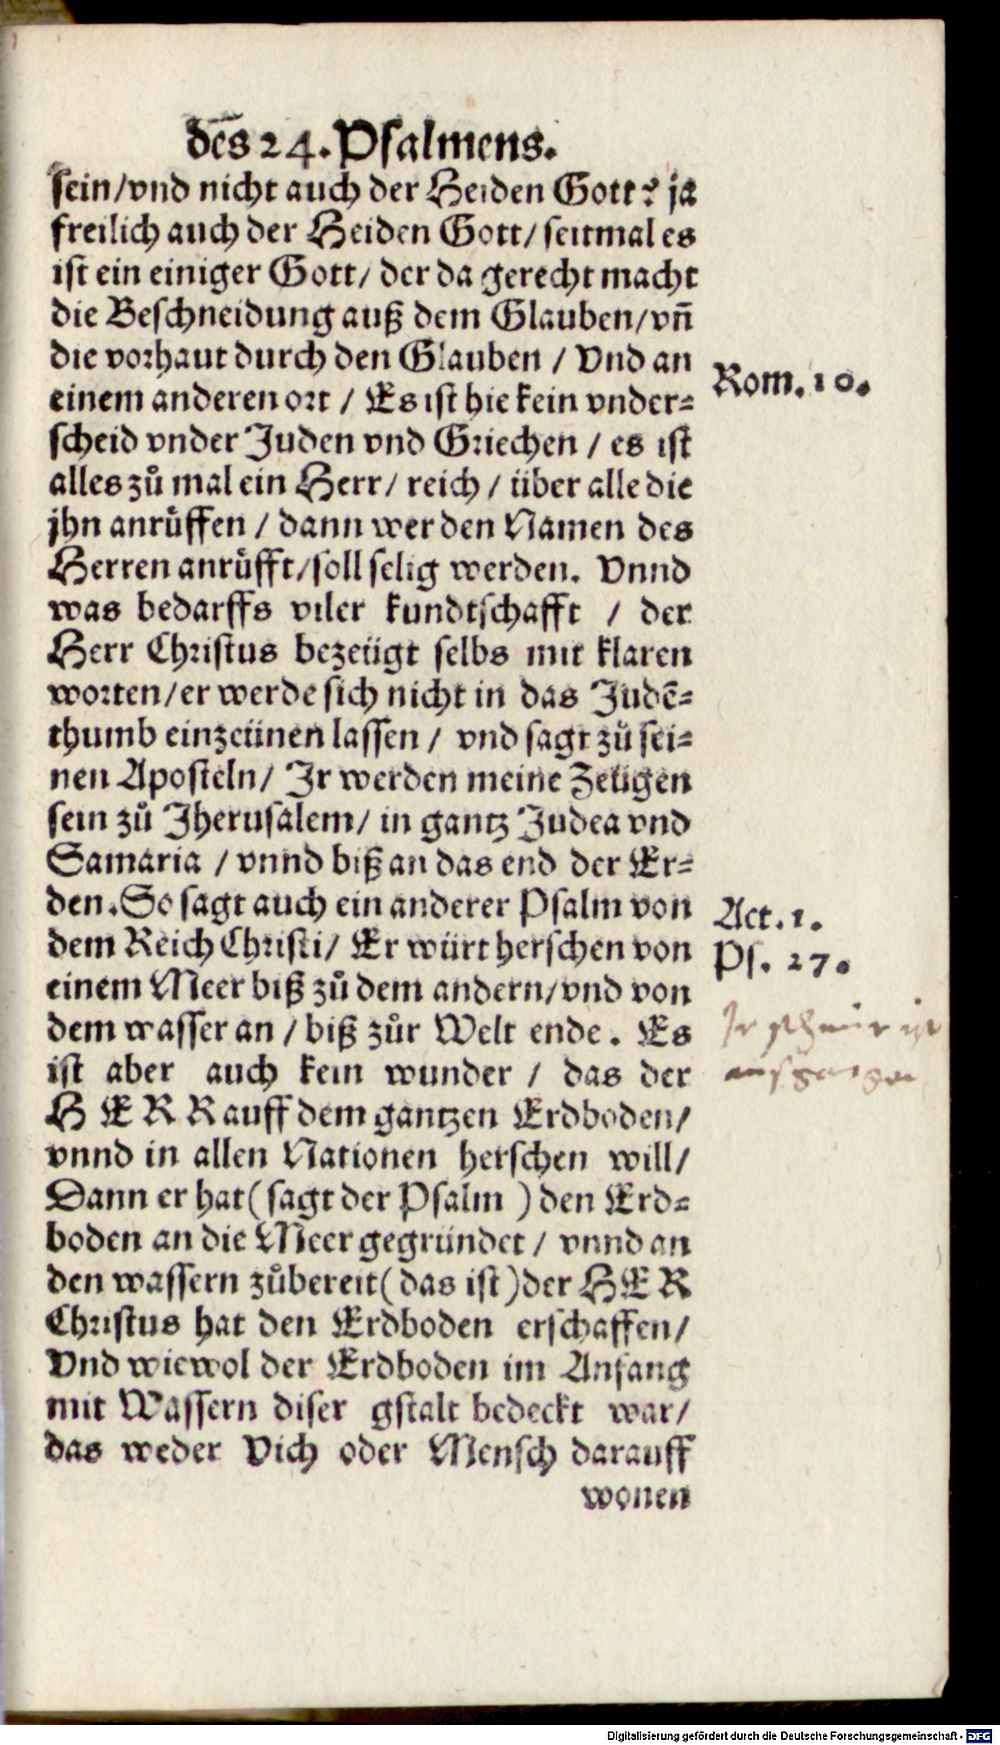 des 24. Psalmens.
sein/vnd nicht auch der Heiden Gott? ja
freilich auch der Heiden Gott/ seitmal es
ist ein einiger Gott/ der da gerecht macht
die Beschneidung auß dem Glauben/vñ
die vorhaut durch den Glauben / Vnd an
einem anderen ort / Es ist hie kein vnder-
Rom. 10.
scheid vnder Juden vnd Griechen / es ist
alles zů mal ein Herr/ reich / über alle die
jhn anrůffen / dann wer den Namen des
Herren anrůfft/soll selig werden. Vnnd
was bedarffs viler kundtschafft / der
Herr Christus bezeügt selbs mit klaren
worten/er werde sich nicht in das Judē-
thumb einzeünen lassen / vnd sagt zů sei-
nen Aposteln/ Ir werden meine Zeügen
sein zů Jherusalem/ in gantz Judea vnd
Samaria / vnnd biß an das end der Er-
den. So sagt auch ein anderer Psalm von
Act. 1.
dem Reich Christi/ Er würt herschen von
Ps. 27.
einem Meer biß zů dem andern/vnd von
dem wasser an / biß zůr Welt ende. Es
ist aber auch kein wunder / das der
HERR auff dem gantzen Erdboden/
vnnd in allen Nationen herschen will/
Dann er hat( sagt der Psalm ) den Erd-
boden an die Meer gegründet / vnnd an
den wassern zůbereit( das ist )der HER
Christus hat den Erdboden erschaffen/
Vnd wiewol der Erdboden im Anfang
mit Wassern diser gstalt bedeckt war/
das weder Vich oder Mensch darauff
wonen
Digitalisierung gefördert durch die Deutsche Forschungsgemeinschaft - DFG